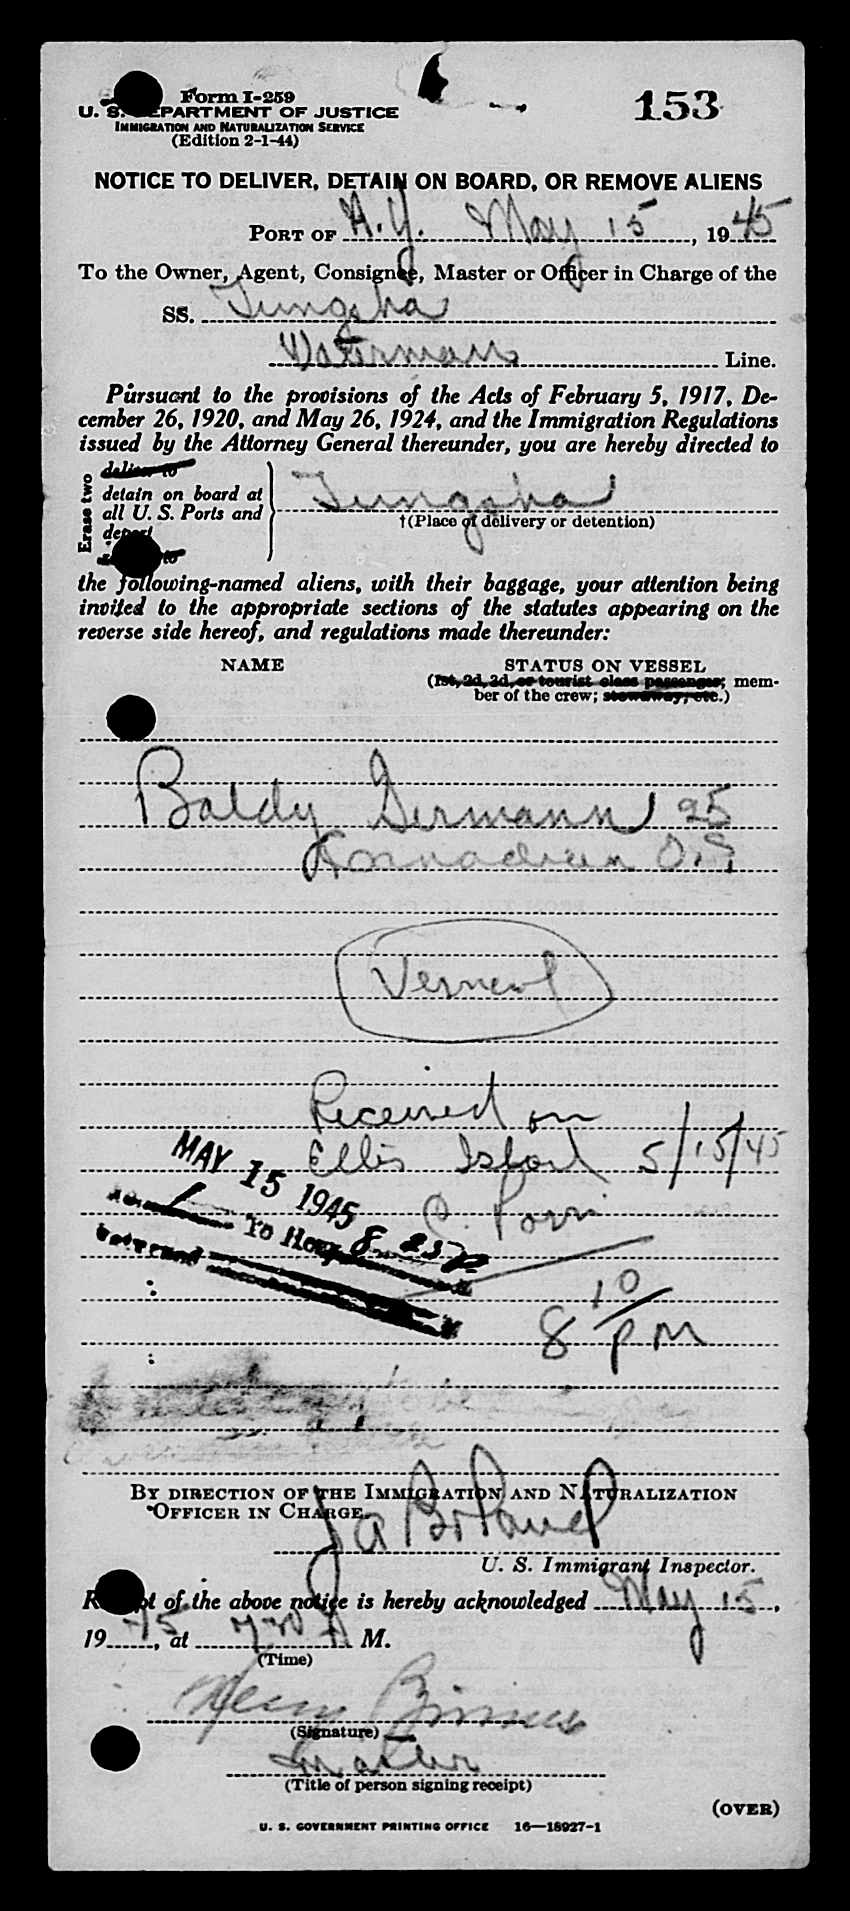 Form I-259
153
U. S. DEPARTMENT OF JUSTICE
IMMIGRATION AND NATURALIZATION SERVICE
(Edition 2-1-44)
NOTICE TO DELIVER, DETAIN ON BOARD, OR REMOVE ALIENS
PORT OF N.Y. May 15, 1945
To the Owner, Agent, Consignee, Master or Officer in Charge of the
SS. Tungsha
Waterman Line.
Pursuant to the provisions of the Acts of February 5, 1917, De-
cember 26, 1920, and May 26, 1924, and the Immigration Regulations
issued by the Attorney General thereunder, you are hereby directed to
Erase two
deliver to
detain on board at
all U. S. Ports and
deport
Tungsha
†(Place of delivery or detention)
the following-named aliens, with their baggage, your attention being
invited to the appropriate sections of the statutes appearing on the
reverse side hereof, and regulations made thereunder:
NAME
STATUS ON VESSEL
(1st, 2d, 3d, or tourist class passenger; mem-
ber of the crew; stowaway, etc.)
Baldy Germann 25
O.S.
Received on
Ellis Island 5/15/45
C.
MAY 15 1945
To Hosp
8 10/PM
BY DIRECTION OF THE IMMIGRATION AND NATURALIZATION
OFFICER IN CHARGE.
J A
U. S. Immigrant Inspector.
Receipt of the above notice is hereby acknowledged May 15,
1945, at A M.
(Time)
(Signature)
Master
(Title of person signing receipt)
(OVER)
U. S. GOVERNMENT PRINTING OFFICE 16—18927-1